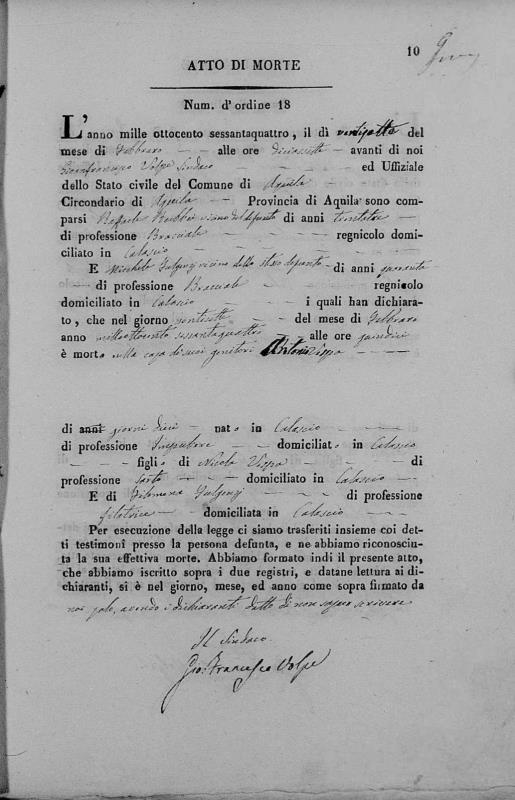 10
ATTO DI MORTE
Num. d'ordine 18
L'anno mille ottocento sessantaquattro, il dì ventisette del
mese di Febbraro — — alle ore diciassette — avanti di noi
Gianfrancesco Volpe Sindaco — — — — ed Uffiziale
dello Stato civile del Comune di Aquila — —
Circondario di Aquila — Provincia di Aquila sono com-
parsi Raffaele vicino del defunto di anni trentatre
di professione Bracciale — — — regnicolo domi-
ciliato in Calascio — — — —
E Michele Fulgenzi vicino dello stesso defunto — di anni quaranta
— di professione Bracciale — — regnicolo
domiciliato in Calascio — — i quali han dichiara-
to, che nel giorno ventisette — — del mese di Febbraro
anno milleottocento sessantaquattro — alle ore quindici
è morto nella casa di suoi genitori Antonio — — —
di anni giorni dieci — nato in Calascio — — —
di professione — — domiciliato in Calascio
— — figlio di Nicola — — — di
professione Sarto — — domiciliato in Calascio —
E di Filomena Fulgenzi — — — di professione
filatrice — domiciliata in Calascio — — —
Per esecuzione della legge ci siamo trasferiti insieme coi det-
ti testimonî presso la persona defunta, e ne abbiamo riconosciu-
ta la sua effettiva morte. Abbiamo formato indi il presente atto,
che abbiamo iscritto sopra i due registri, e datane lettura ai di-
chiaranti, si è nel giorno, mese, ed anno come sopra firmato da
noi solo, avendo i dichiaranti detto di non sapere scrivere
Il Sindaco
Gio: Francesco Volpe